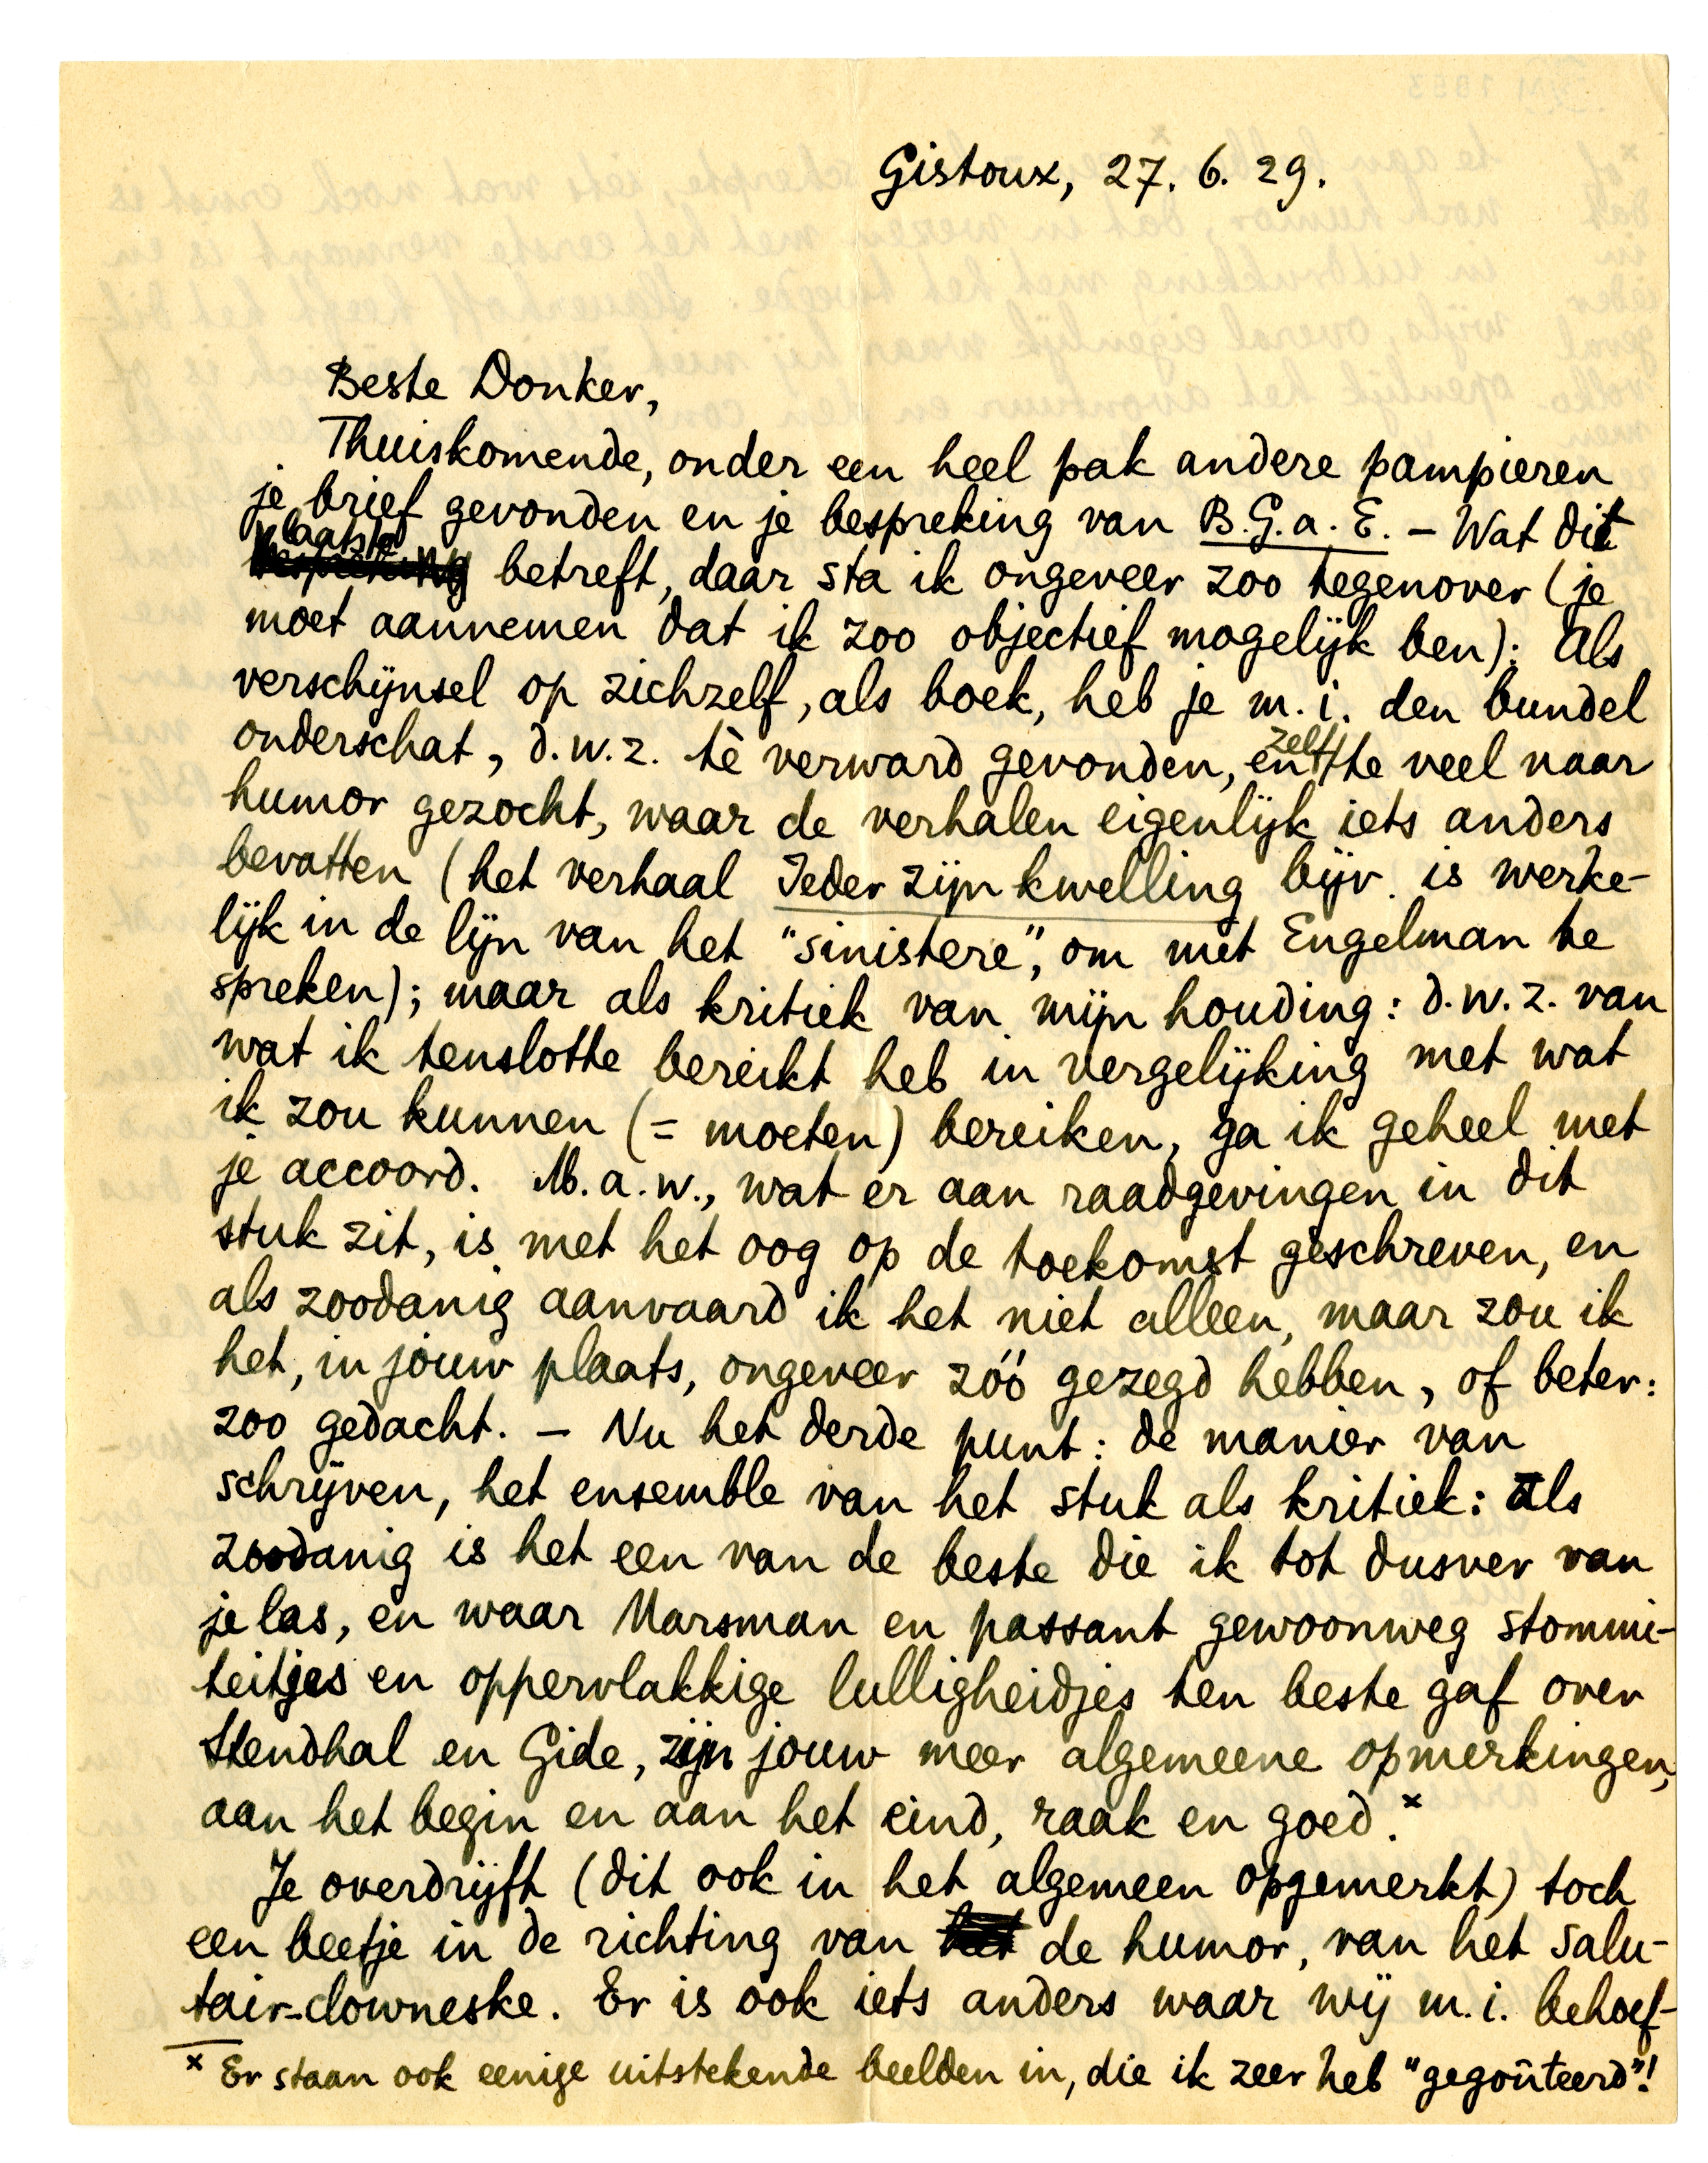 Gistoux, 27. 6. 29.
Beste Donker,
Thuiskomende, onder een heel pak andere pampieren
je brief gevonden en je bespreking van B.G.a.E. – Wat dit
laatste betreft, daar sta ik ongeveer zoo tegenover (je
moet aannemen dat ik zoo objectief mogelijk ben): Als
verschijnsel op zichzelf, als boek, heb je m.i. den bundel
onderschat, d.w.z. tè verward gevonden, en zelf te veel naar
humor gezocht, waar de verhalen eigenlijk iets anders
bevatten (het verhaal Ieder zijn kwelling bijv. is werke-
lijk in de lijn van het "sinistere", om met Engelman te
spreken); maar als kritiek van mijn houding: d.w.z. van
wat ik tenslotte bereikt heb in vergelijking met wat
ik zou kunnen (= moeten) bereiken, ga ik geheel met
je accoord. M.a.w., wat er aan raadgevingen in dit
stuk zit, is met het oog op de toekomst geschreven, en
als zoodanig aanvaard ik het niet alleen, maar zou ik
het, in jouw plaats, ongeveer zóó gezegd hebben, of beter:
zoo gedacht. – Nu het derde punt: de manier van
schrijven, het ensemble van het stuk als kritiek: als
zoodanig is het een van de beste die ik tot dusver van
je las, en waar Marsman en passant gewoonweg stommi-
teitjes en oppervlakkige lulligheidjes ten beste gaf over
Stendhal en Gide, zijn jouw meer algemeene opmerkingen,
aan het begin en aan het eind, raak en goed.x
Je overdrijft (dit ook in het algemeen opgemerkt) toch
een beetje in de richting van de humor, van het salu-
tair-clowneske. Er is ook iets anders waar wij m.i. behoef-
x Er staan ook eenige uitstekende beelden in, die ik zeer heb "gegoûteerd"!